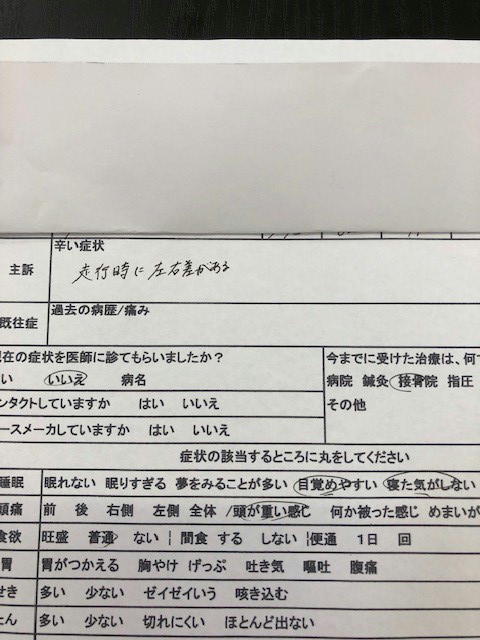 辛い症状
主訴 走行時に左右差がある
過去の病歴/痛み
既往症
現在の症状を医師に診てもらいましたか? 今までに受けた治療は、何で
い いいえ 病名 病院 鍼灸 接骨院 指圧
ンタクトしていますか はい いいえ その他
ースメーカしていますか はい いいえ
症状の該当するところに丸をしてください
睡眠 眠れない 眠りすぎる 夢をみることが多い 目覚めやすい 寝た気がしない
頭痛 前 後 右側 左側 全体 /頭が重い感じ 何か被った感じ めまいが
食欲 旺盛 普通 ない ¦ 間食 する しない ¦便通 1日 回
胃 胃がつかえる 胸やけ げっぷ 吐き気 嘔吐 腹痛
せき 多い 少ない ゼイゼイいう 咳き込む
たん 多い 少ない 切れにくい ほとんど出ない